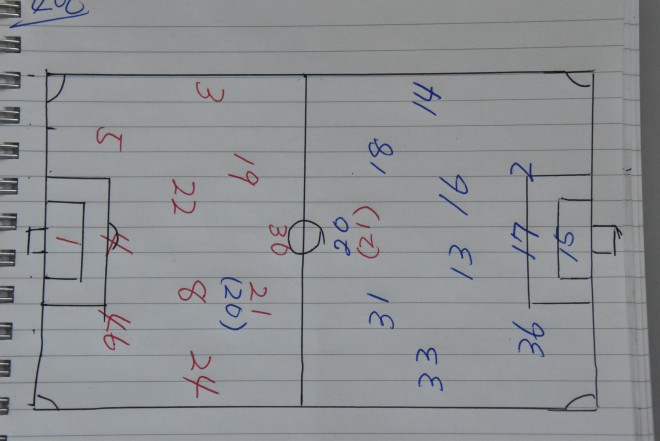 15
2 17 36
41 16 13 33
18 31
20
(12)
30
19 21
(20)
3 22 8 24
5 4 46
1